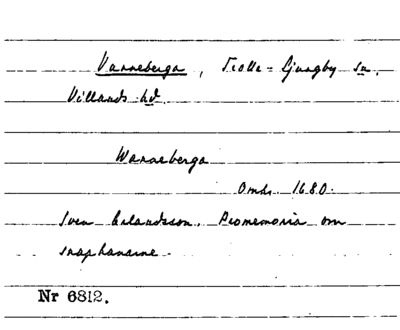 Vanneberga, Trolle-Ljungby sn,
Villands hd.
Wanneberga
Omkr 1680.
Sven Erlandsson, Promemoria om
snaphanarne.
Nr 6812.